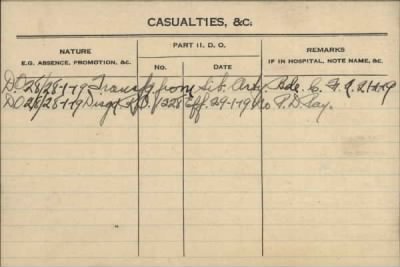 CASUALTIES, &C.
NATURE
E.G. ABSENCE, PROMOTION, &C.
PART II. D. O.
No.
DATE
REMARKS
IF IN HOSPITAL, NOTE NAME, &C.
D.O 28/28-1-19 Transfd from Sib. Arty. Bde. C. F. A. 21-1-19
DO 28/28-1-19 Disgd R.O. 1328 Eff. 29-1-19 No P. D Pay.